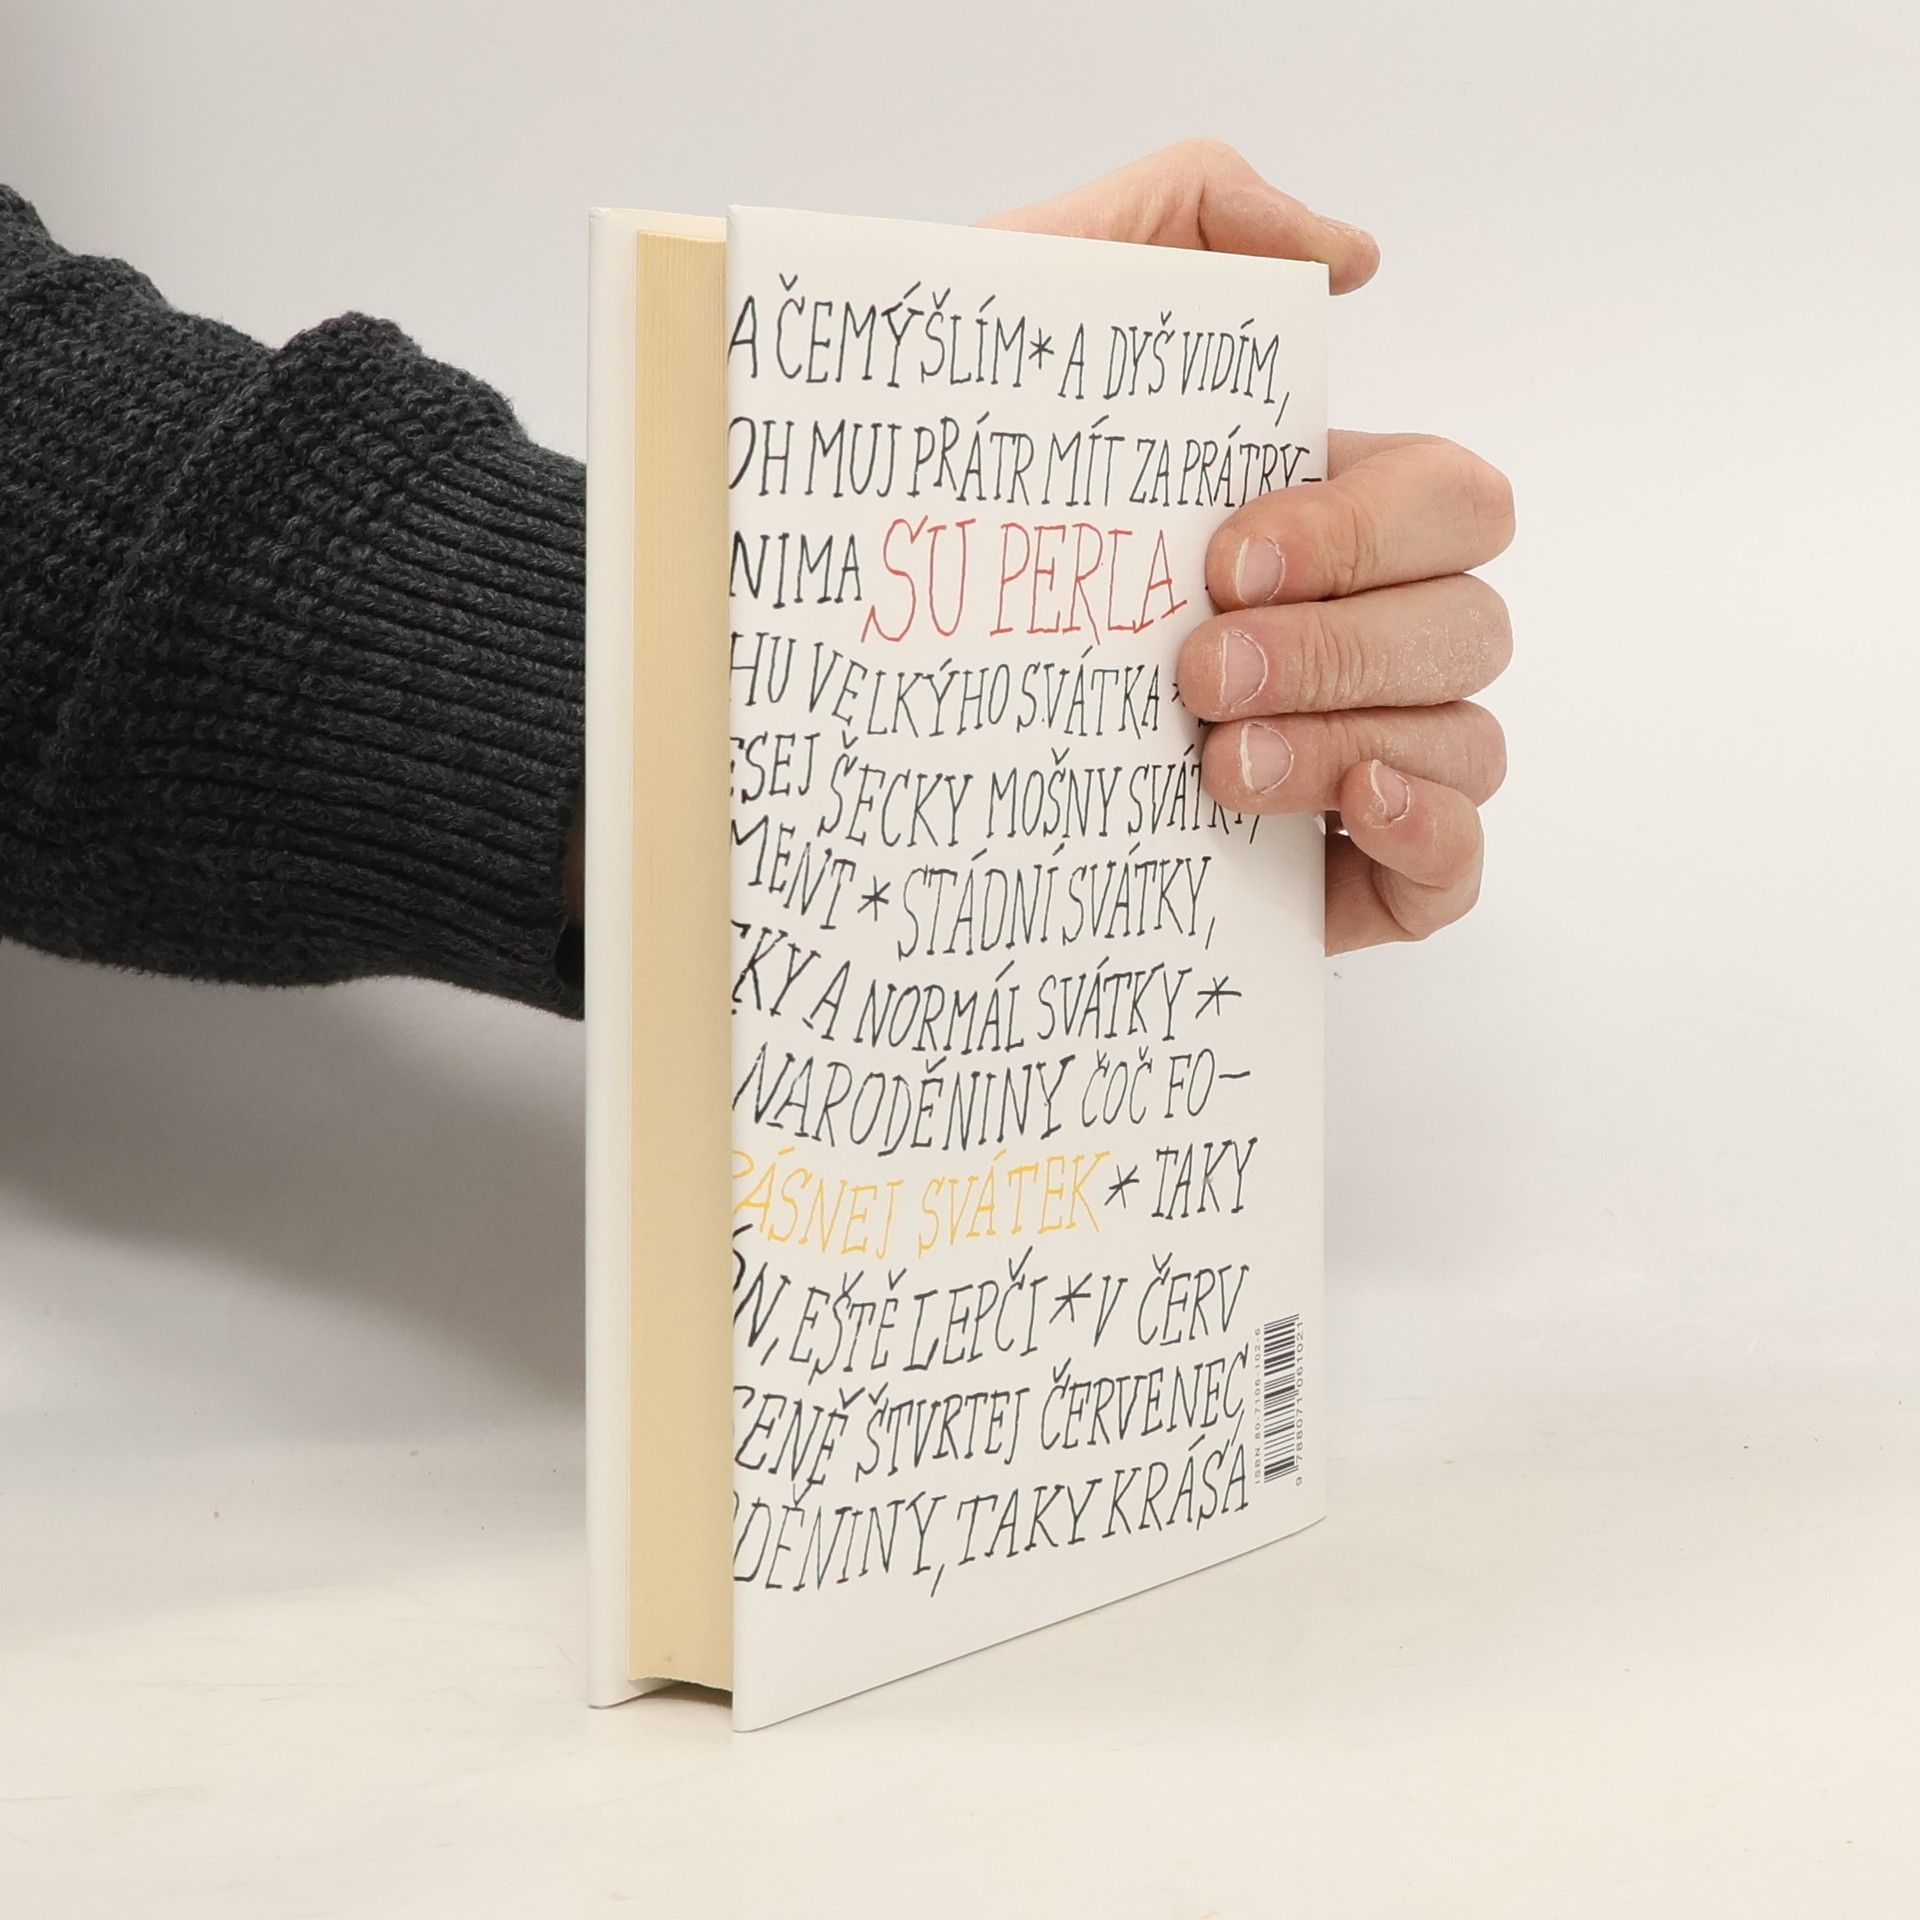 A ČEMÝŠLÍM * A DYŠ VIDÍM,
OH MUJ PRÁTR MÍT ZA PRÁTRY-
NIMA SU PERLA
HU VELKÝHO SVÁTKA *
ESEJ ŠECKY MOŠNY SVÁTKY,
MENT * STÁDNÍ SVÁTKY,
KY A NORMÁL SVÁTKY *
NARODĚNINY ČOČ FO-
ÁSNEJ SVÁTEK * TAKY
N, EŠTĚ LEPČI * V ČERV
CENĚ ŠTVRTEJ ČERVENEC,
DĚNINY, TAKY KRÁSÁ
ISBN 80-7106-102-6
9 788071 061021